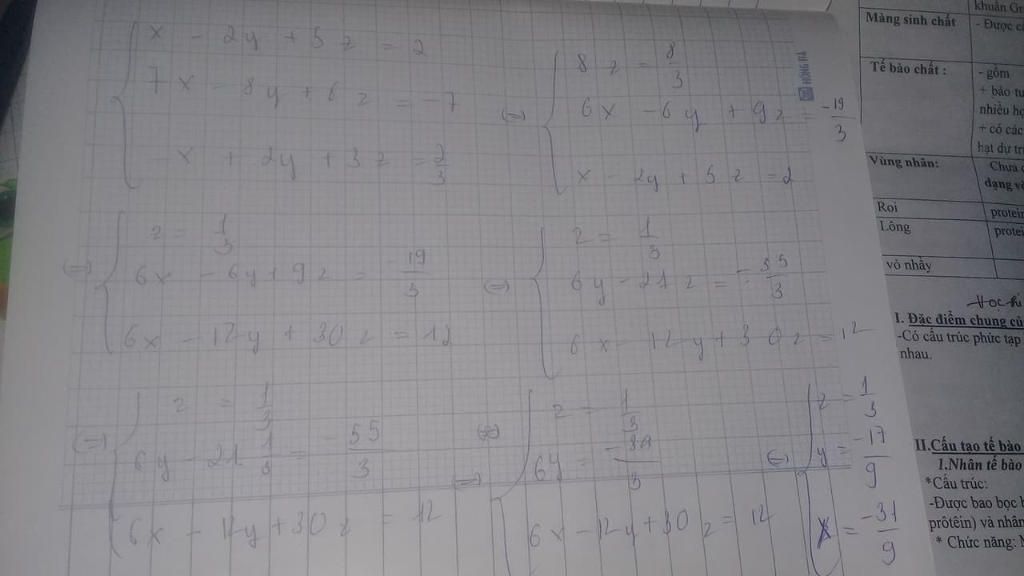 x - 2y + 5z = 2
7x - 8y + 6z = -7
-x + 2y + 3z = 2/3
⇔ 8z = 8/3
6x - 6y + 9z = -19/3
x - 2y + 5z = 2
⇔ z = 1/3
6x - 6y + 9z = -19/3
6x - 12y + 30z = 12
⇔ z = 1/3
6y - 21z = -55/3
6x - 12y + 30z = 12
⇔ z = 1/3
6y - 21 1/3 = -55/3
6x - 12y + 30z = 12
⇔ z = 1/3
6y = -34/3
6x - 12y + 30z = 12
⇔ z = 1/3
y = -17/9
x = -31/9
HỒNG HÀ
khuẩn
Màng sinh chất
- Được
Tế bào chất :
- gồm
+ bào
nhiều
+ có các
hạt dự
Vùng nhân:
Chưa
dạng
Roi
protein
Lông
protein
vỏ nhầy
I. Đặc điểm chung
-Có cấu trúc phức tạp
nhau.
II.Cấu tạo tế bào
1.Nhân tế bào
*Cấu trúc:
-Được bao bọc
prôtêin) và nhân
* Chức năng: